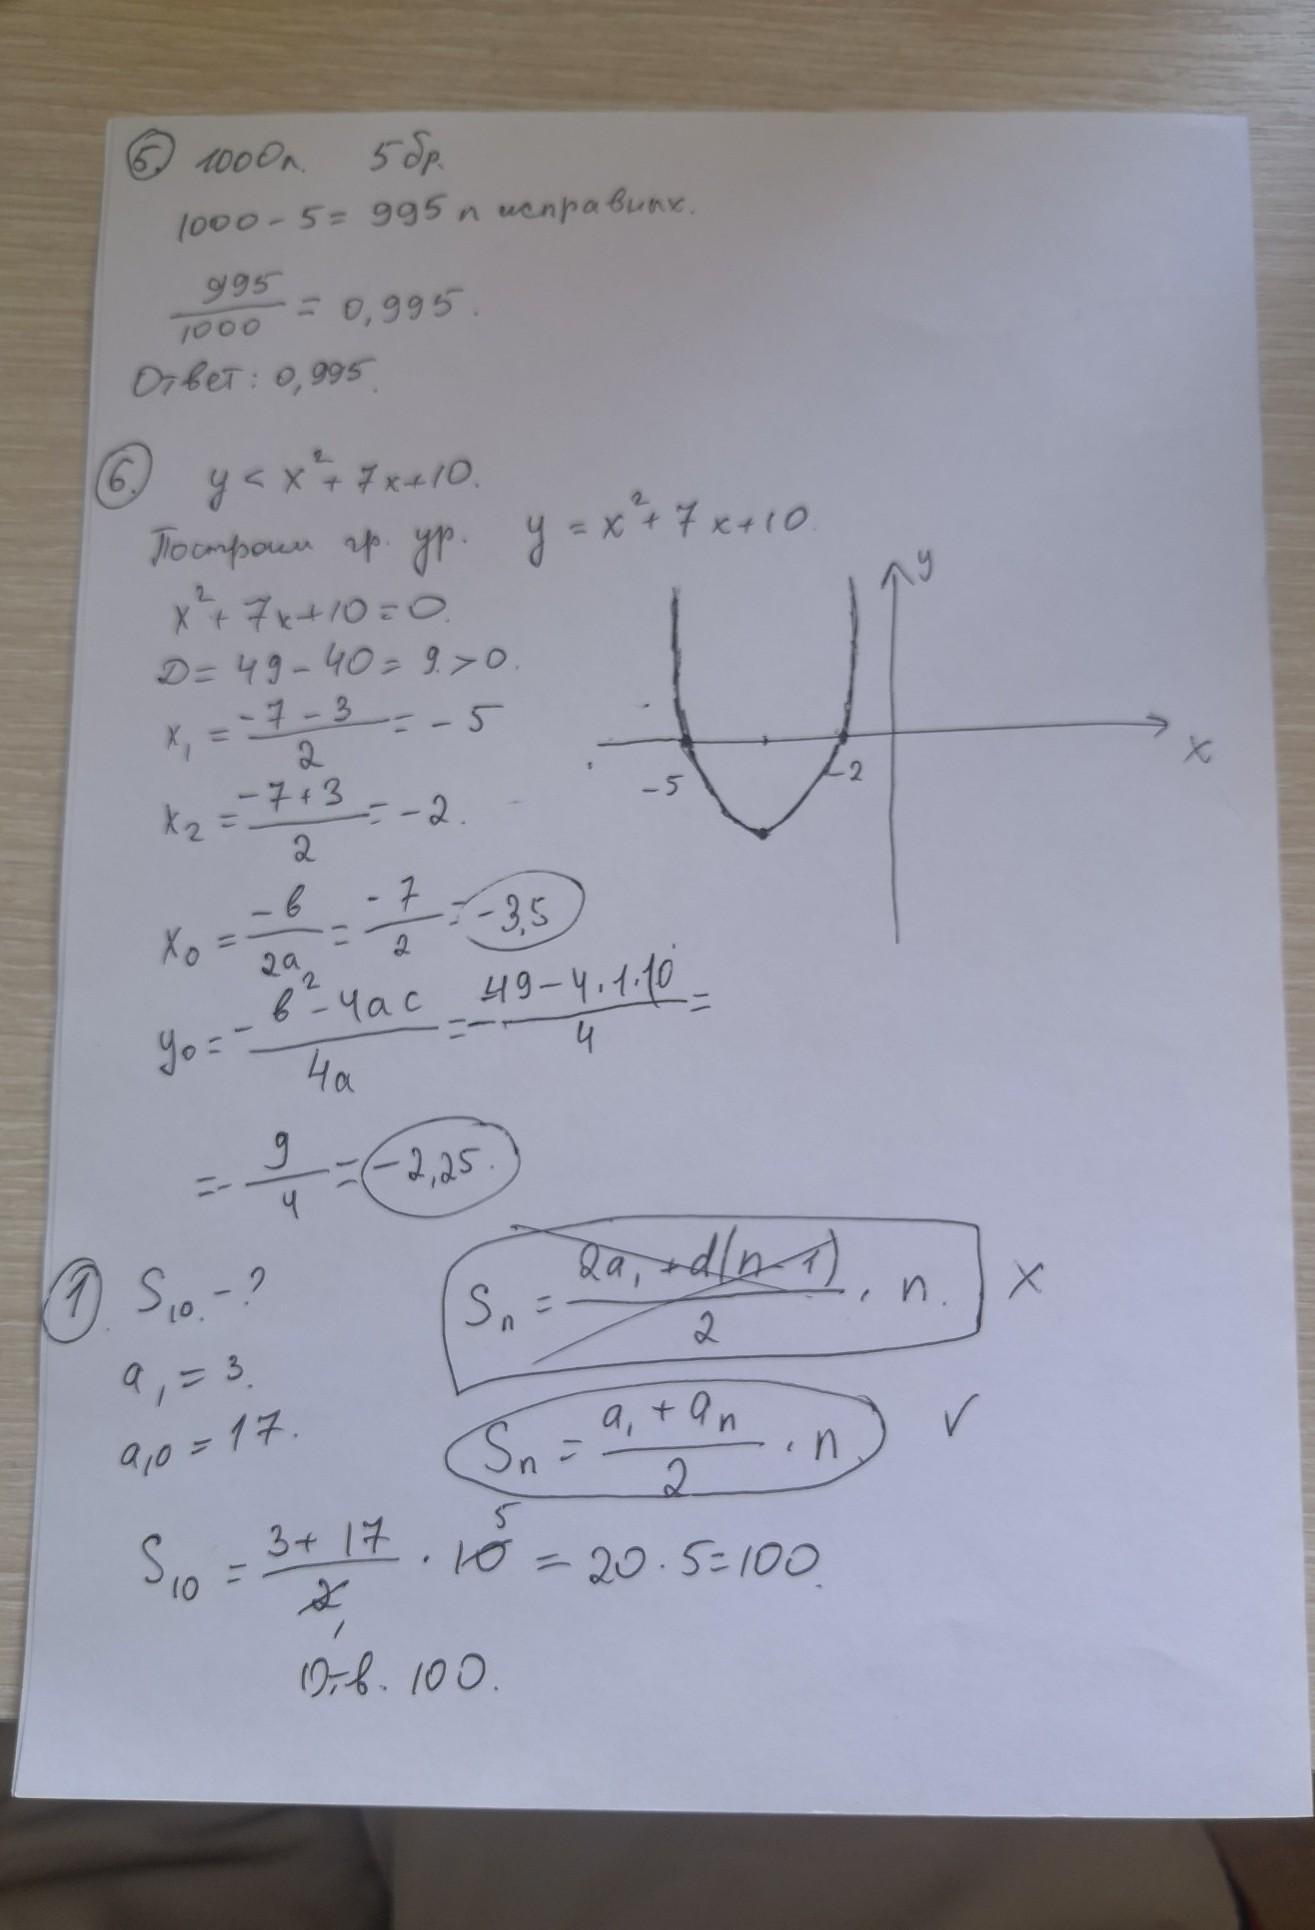 5. 1000 п. 5 бр.
1000 - 5 = 995 п исправных.
995/1000 = 0,995.
Ответ: 0,995.
6. y < x² + 7x + 10.
Построим гр. ур. y = x² + 7x + 10.
x² + 7x + 10 = 0.
D = 49 - 40 = 9 > 0.
x₁ = (-7 - 3)/2 = -5
x₂ = (-7 + 3)/2 = -2.
y
x
-5
-2
x₀ = -в/2a = -7/2 = -3,5
y₀ = - (в² - 4ac)/4a = - (49 - 4·1·10)/4 =
= - 9/4 = -2,25.
1. S₁₀ - ?
Sₙ = (2a₁ + d(n - 1))/2 · n. X
a₁ = 3.
a₁₀ = 17.
Sₙ = (a₁ + aₙ)/2 · n V
S₁₀ = (3 + 17)/2 · 10 = 20 · 5 = 100.
5
1
От-в. 100.